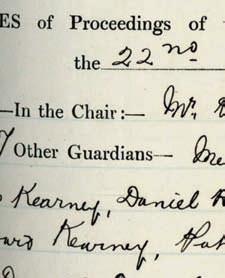 ES of Proceedings of
the 22nd
—In the Chair:— Mr.
Other Guardians— Me
Kearney, Daniel
ward Kearney, Pat